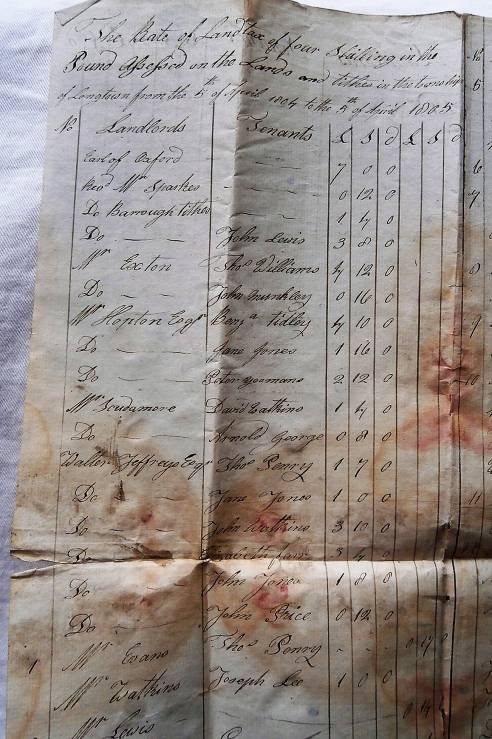 The Rate of Landtax of four Shilling in the
Pound Assessed on the Lands and tithes in the township
of Longtown from the 5th of April 1804 to the 5th of April 1805
No Landlords Tenants £ S d £ S d
Earl of Oxford — — 7 0 0
Revd Mr Sparkes — — 0 12 0
Do Barrough tithes — — 1 4 0
Do — — John Lewis 3 8 0
Mr Exton Thos Williams 4 12 0
Do — — John 0 16 0
Mr Hopton Esqr Benja tidley 4 10 0
Do — — Jane Jones 1 16 0
Do — — Peter yeomans 2 12 0
Mr Scudamore David Watkins 1 4 0
Do — — Arnold George 0 8 0
Walter Jeffreys Esqr Thos Penry 1 7 0
Do — — Jane Jones 1 0 0
Do — — John Watkins 3 10 0
Do — — Elizabeth 3 4 0
Do — — John Jones 1 8 0
Do — — John Price 0 12 0
1 Mr Evans Thos Penry - - 0 17
Mr Watkins Joseph Lee 1 0 0
Mr Lewis 0 14
No
5
6
7
8
9
10
11